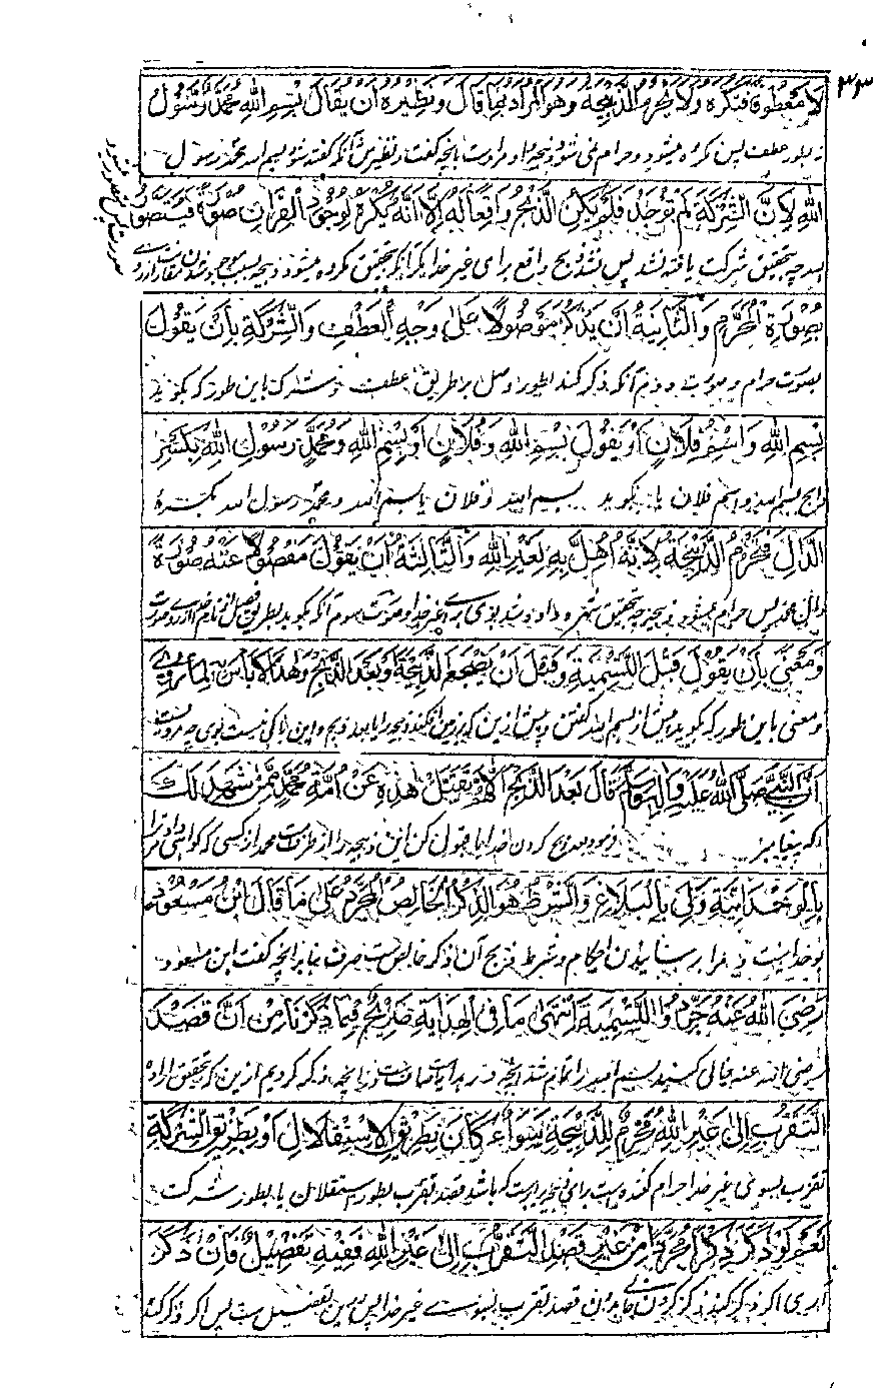 ۳۳
لَا مَعْطُوفَةً فَتُكْرَهُ وَلَا تَحْرُمُ الذَّبِيحَةُ وَهُوَ الْمُرَادُ بِمَا قَالَ وَنَظِيرُهُ أَنْ يُقَالَ بِسْمِ اللهِ مُحَمَّدٌ رَّسُوْلُ
نہ بطور عطف پس مکروہ میشود و حرام نمی شود ذبیحہ و مراد ست بآنچہ گفت و نظیرش آنکہ گفتہ شود بسم اللہ محمد رسول
اللهِ لِاَنَّ الشِّرْكَةَ لَمْ تُوْجَدْ فَلَمْ يَكُنِ الذَّبْحُ وَاقِعًا لَهُ اِلَّا اَنَّهُ يُكْرَهُ لِوُجُوْدِ الْقِرَانِ صُوْرَةً فَيُتَصَوَّرُ
اللہ چہ بتحقیق شرکت یافتہ نشد پس نشد ذبح واقع برای غیر خدا مگر آنکہ بتحقیق مکروہ میشود ذبیحہ بسبب موجود شدن
بِصُوْرَةِ الْمُحَرَّمِ وَالثَّانِيَةُ اَنْ يَذْكُرَ مَوْصُوْلًا عَلٰى وَجْهِ الْعَطْفِ وَالشِّرْكَةِ بِاَنْ يَقُوْلَ
بصورت حرام و صورت دوم آنکہ ذکر کند بطور وصل بر طریق عطف و شرکت باین طور کہ گوید
بِسْمِ اللهِ وَاسْمِ فُلَانٍ اَوْ يَقُوْلَ بِسْمِ اللهِ وَفُلَانٍ اَوْ بِسْمِ اللهِ وَمُحَمَّدٍ رَسُوْلِ اللهِ بِكَسْرِ
ذابح بسم اللہ و اسم فلان یا بگوید بسم اللہ و فلان یا بسم اللہ و محمد رسول اللہ بکسرۂ
الدَّالِ فَتَحْرُمُ الذَّبِيْحَةُ لِاَنَّهُ اُهِلَّ بِهِ لِغَيْرِ اللهِ وَالثَّالِثَةُ اَنْ يَقُوْلَ مَفْصُوْلًا عَنْهُ صُوْرَةً
دال محمد پس حرام میشود ذبیحہ چہ بتحقیق شہرہ دادہ شد بوی برای غیر خدا و صورت سوم آنکہ بگوید بطریق فصل
وَمَعْنًى بِاَنْ يَقُوْلَ قَبْلَ التَّسْمِيَةِ وَقَبْلَ اَنْ يُضْجِعَ الذَّبِيْحَةَ اَوْ بَعْدَ الذَّبْحِ وَهٰذَا لَا بَاْسَ بِهِ لِمَا رُوِيَ
و معنی باین طور کہ بگوید پیش از بسم اللہ گفتن و پیش ازین کہ بر زمین افگند ذبیحہ را یا بعد ذبح و این باکی نیست بوی چہ مرویست
اَنَّ النَّبِيَّ صَلَّى اللهُ عَلَيْهِ وَاٰلِهِ وَسَلَّمَ قَالَ بَعْدَ الذَّبْحِ اَللّٰهُمَّ تَقَبَّلْ هٰذِهٖ عَنْ اُمَّةِ مُحَمَّدٍ مِمَّنْ شَهِدَ لَكَ
کہ پیغامبر فرمود بعد ذبح کردن خدایا قبول کن این ذبیحہ را از طرف امت محمد از کسی کہ گواہی داد ترا
بِالْوَحْدَانِيَّةِ وَلِيْ بِالْبَلَاغِ وَالشَّرْطُ هُوَ الذِّكْرُ الْخَالِصُ الْمُجَرَّدُ عَلٰى مَا قَالَ ابْنُ مَسْعُوْدٍ
بوحدانیت و مرا برسانیدن احکام و شرط ذبح آن ذکر خالص ست صرف بنا بر آنچہ گفت ابن مسعود
رَضِيَ اللهُ عَنْهُ جَرِّدُوا التَّسْمِيَةَ اِنْتَهٰى مَا فِي الْهِدَايَةِ صَرِيْحٌ فِيْمَا ذَكَرْنَا مِنْ اَنَّ قَصْدَ
رضی اللہ عنہ خالی کنید بسم اللہ را تمام شد آنچہ در ہدایہ صاف ست در آنچہ ذکر کردیم ازین کہ بتحقیق ارادہ
التَّقَرُّبِ اِلٰى غَيْرِ اللهِ مُحَرِّمٌ لِلذَّبِيْحَةِ سَوَاءٌ كَانَ بِطَرِيْقِ الْاِسْتِقْلَالِ اَوْ بِطَرِيْقِ الشِّرْكَةِ
تقرب بسوی غیر خدا حرام کنندہ ست برای ذبیحہ برابرست کہ باشد قصد تقرب بطور استقلال یا بطور شرکت
نَعَمْ لَوْ ذَكَرَ ذِكْرًا مُجَرَّدًا مِنْ غَيْرِ قَصْدِ التَّقَرُّبِ اِلٰى غَيْرِ اللهِ فَفِيْهِ تَفْصِيْلٌ فَاِنْ ذَكَرَ
آری اگر ذکر کند ذکر کردن قصد تقرب بسوی غیر خدا پس درین تفصیل ست پس اگر ذکر کند